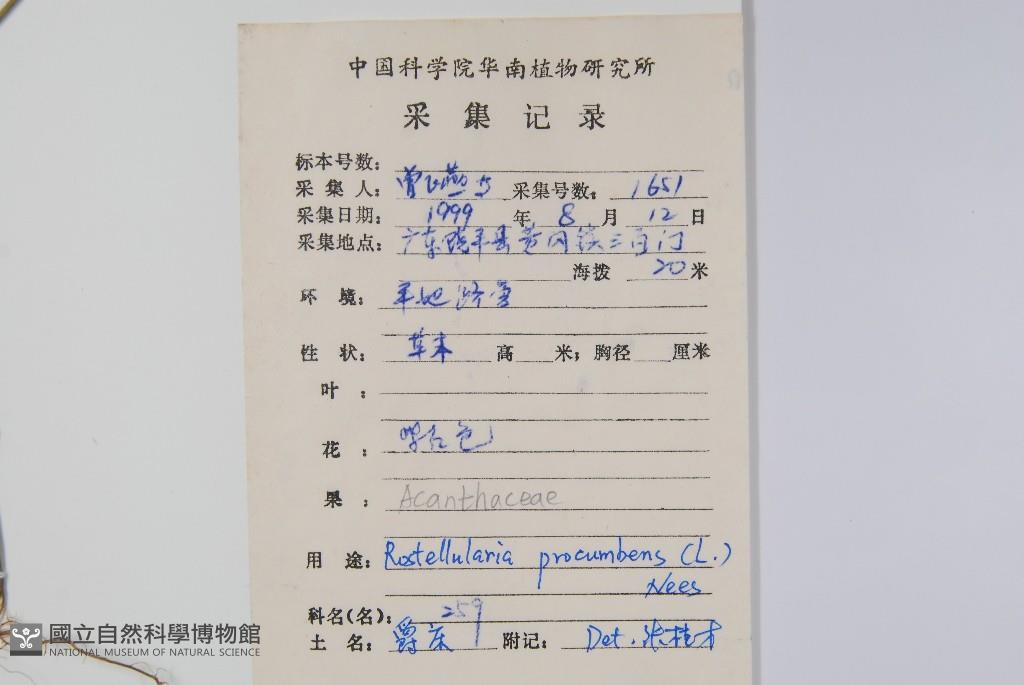 中国科学院华南植物研究所
采集记录
标本号数:
采集人: 曾飞燕 采集号数: 1651
采集日期: 1999 年 8 月 12 日
采集地点: 广东饶平县黄冈镇三百门
海拨 20 米
环境: 平地路旁
性状: 草本 高 米; 胸径 厘米
叶:
花: 色
果: Acanthaceae
用途: Rostellularia procumbens (L.)
Nees
科名(名): 259
土名: 爵床 附记: Det. 张桂才
國立自然科學博物館
NATIONAL MUSEUM OF NATURAL SCIENCE